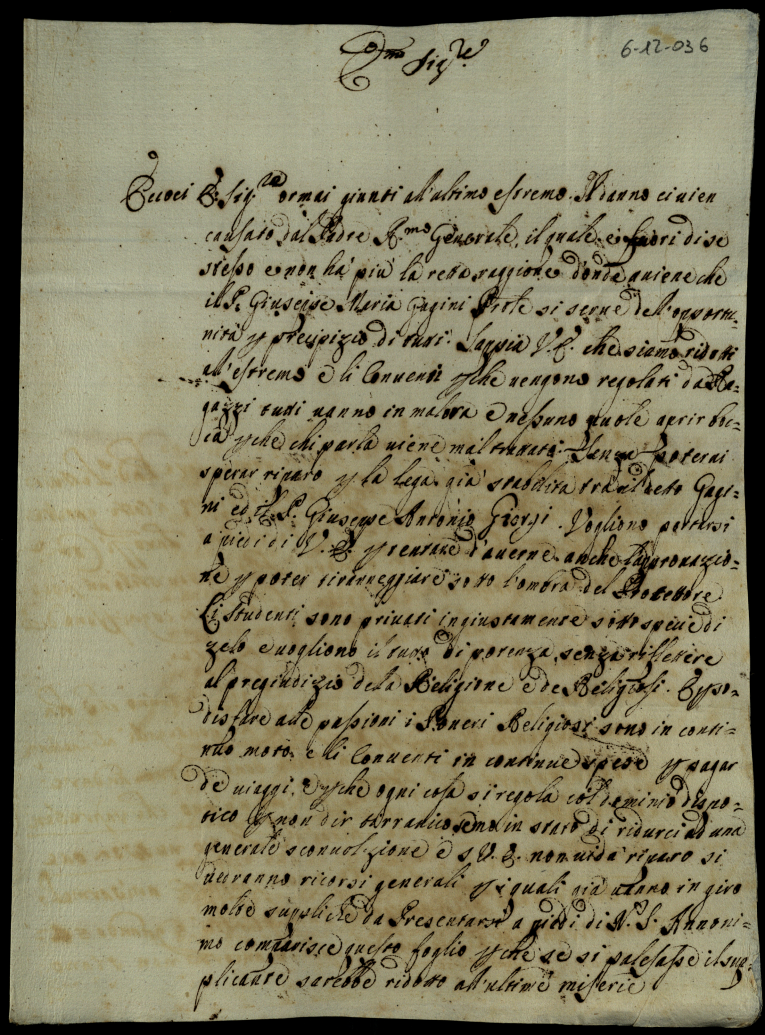 6-12-036
E.mo Sig.re
Eccoci E: Sig.re ormai giunti all'ultimo estremo. Il danno ci vien
causato dal Padre R.mo Generale, il quale è fuori di se
stesso e non ha più la retta raggione d'onde aviene che
il P. Giuseppe Maria Gagini Prete si serve dell'opportu-
nità p precipizio di tutti. Sappia V.E. che siamo ridotti
all'estremo e li Conventi p che vengono regolati da Ra-
gazzi tutti vanno in malora e nessuno puole aprir boc-
ca p che chi parla viene maltrattato. Senza poterai
sperar riparo p la lega già stabilita trà il deto Gagi-
ni ed il P. Giuseppe Antonio Giorgi. Vogliono portarsi
a piedi di V. E. p tentare d'averne anche l'approvazio-
ne p poter tiranneggiare sotto l'ombra del Protettore
Li studenti sono privati ingiustamente sotto specie di
zelo e vogliono il tutto di potenza senza riflettere
al pregiudizio dela Religione e de Religiosi. E p so-
disfare alle passioni i Poveri Religiosi sono in conti-
nuo moto e li Conventi in continue spese p pagar
de viaggi, e p che ogni cosa si regola col dominio dispo-
tico p non dir tirranico semo in stato di ridurci ad una
generale sconvolzione e s V. E. non vi dà riparo si
devranno ricorsi generali p i quali già vanno in giro
molte suppliche da Presentarsi a piedi di N. S. Annoni-
mo comparisce questo foglio p che se si palesasse il sup-
plicante sarebbe ridotto all'ultime miserie